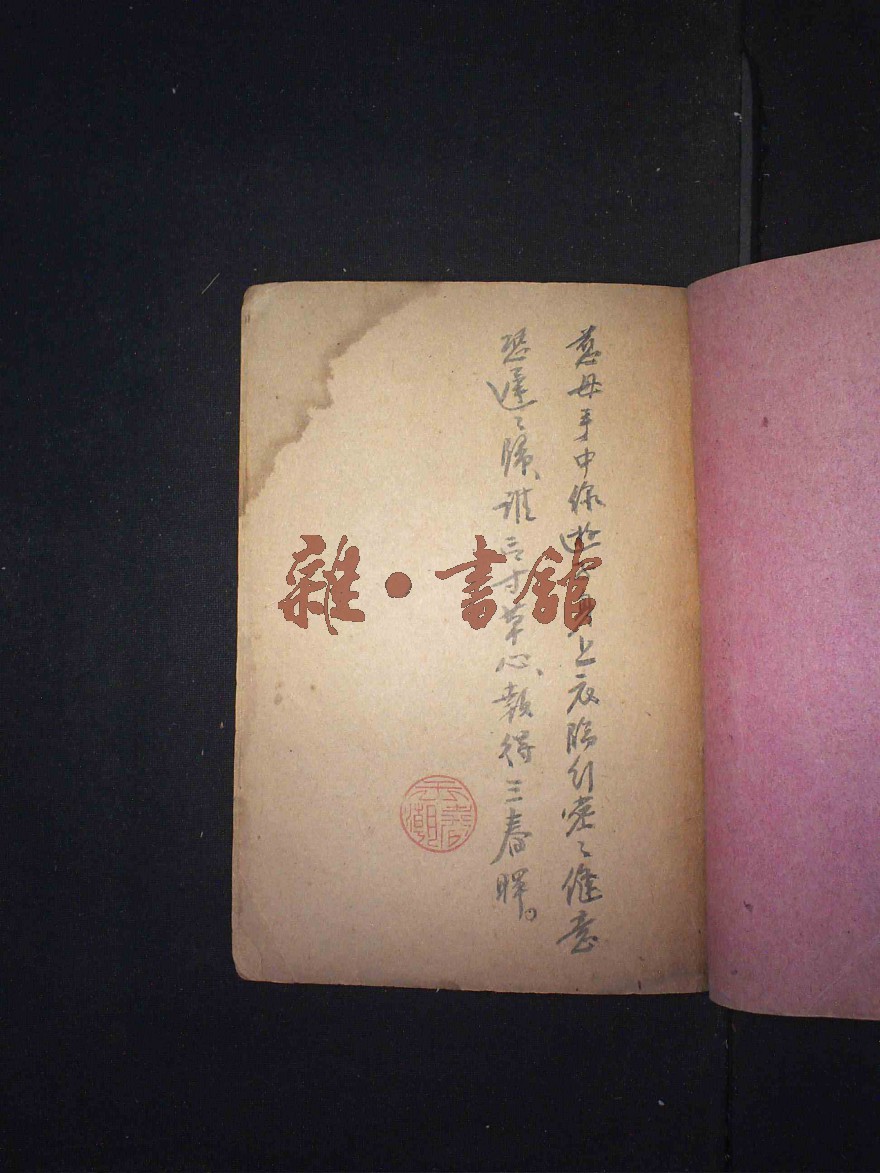 慈母手中線遊子身上衣臨行密〻縫意
恐遲〻歸、誰言寸草心、報得三春暉。
雜•書舘